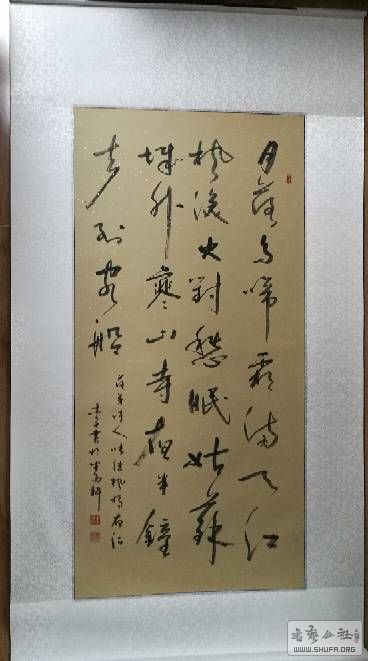 月落烏啼霜满天江
枫渔火對愁眠姑蘇
城外寒山寺夜半鐘
声到客船
诗人张继枫桥夜泊
書藝公社
WWW.SHUFA.ORG